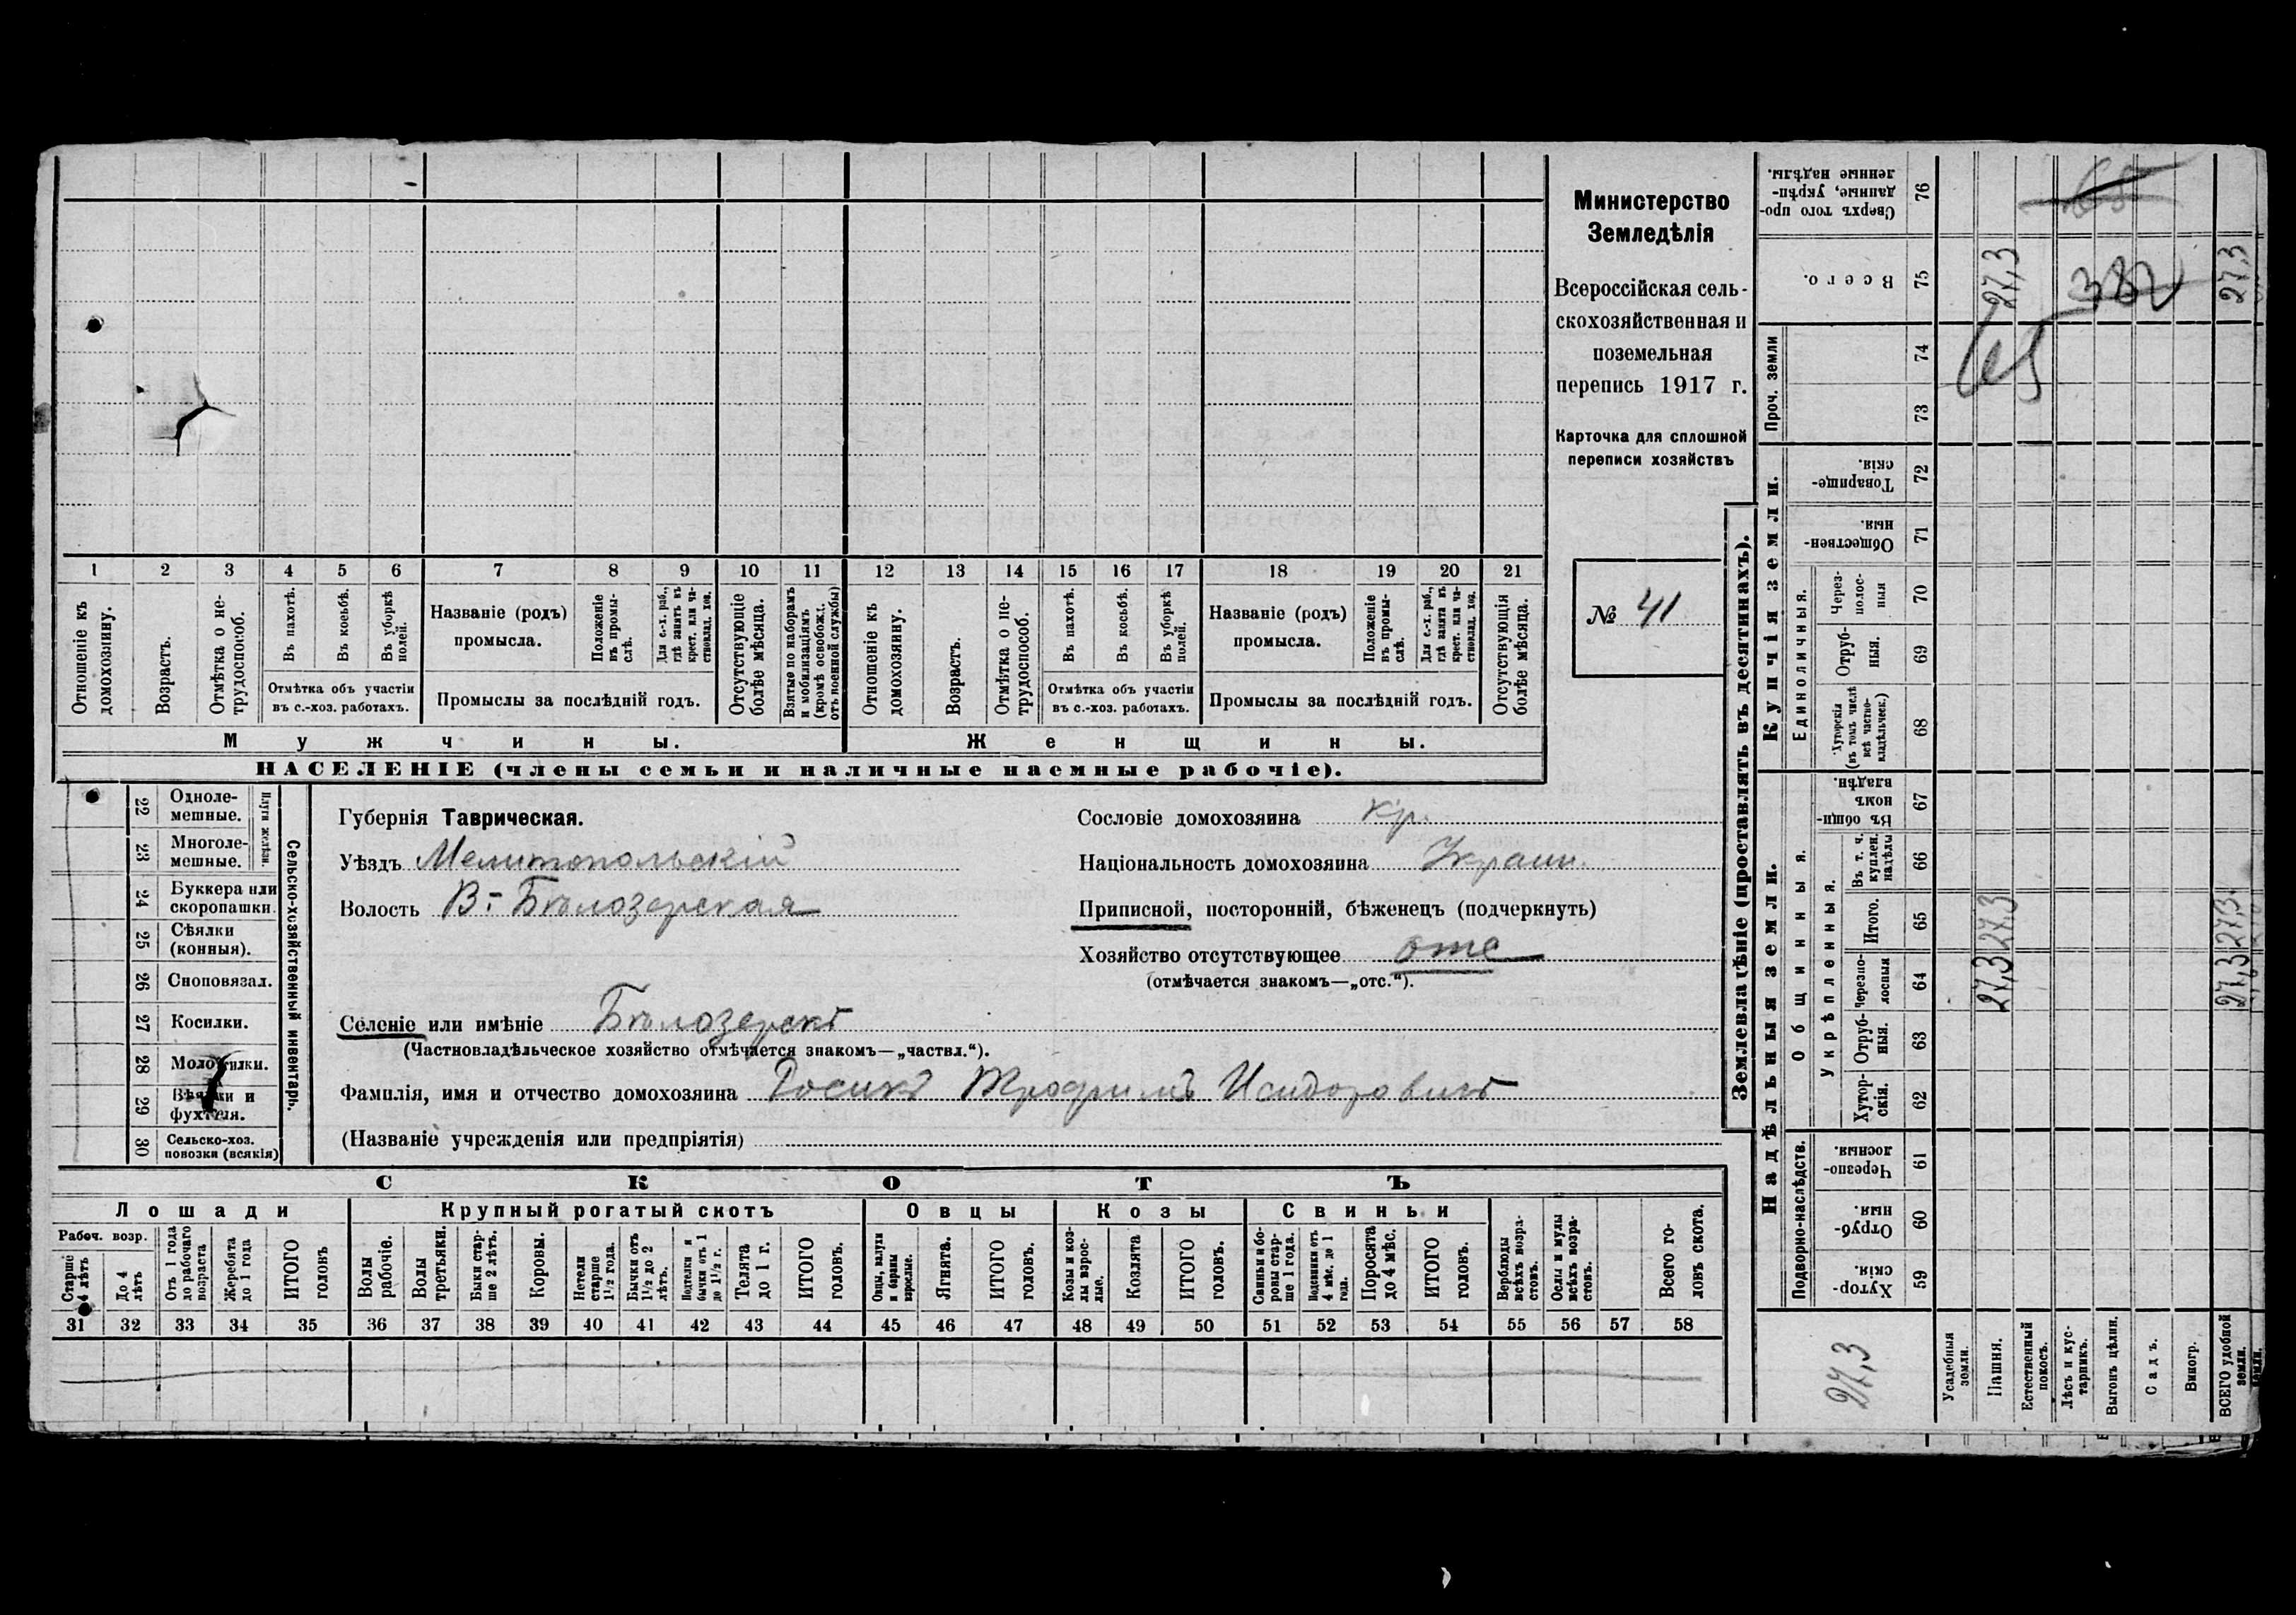 Министерство
Земледѣлія
Всероссійская сель-
скохозяйственная и
поземельная
перепись 1917 г.
Карточка для сплошной
переписи хозяйствъ
№ 41
1 2 3 4 5 6 7 8 9 10 11 12 13 14 15 16 17 18 19 20 21
Отношеніе къ домохозяину.
Возрастъ.
Отмѣтка о не-трудоспособ.
Въ пахотѣ.
Въ косьбѣ.
Въ уборкѣ полей.
Отмѣтка объ участіи
въ с.-хоз. работахъ.
Названіе (родъ)
промысла.
Положеніе въ промы-слѣ.
Для с.-х. раб., гдѣ занятъ въ крест. или ча-стновлад. хоз.
Промыслы за послѣдній годъ.
Отсутствующіе болѣе мѣсяца.
Взятые по наборамъ и мобилизаціямъ (кромѣ освобожд. отъ военной службы)
Отношеніе къ домохозяину.
Возрастъ.
Отмѣтка о не-трудоспособ.
Въ пахотѣ.
Въ косьбѣ.
Въ уборкѣ полей.
Отмѣтка объ участіи
въ с.-хоз. работахъ.
Названіе (родъ)
промысла.
Положеніе въ промы-слѣ.
Для с.-х. раб., гдѣ занята въ крест. или ча-стновлад. хоз.
Промыслы за послѣдній годъ.
Отсутствующія болѣе мѣсяца.
Мужчины.
Женщины.
НАСЕЛЕНІЕ (члены семьи и наличные наемные рабочіе).
Сельско-хозяйственный инвентарь.
Плуги желѣзн.
22 Одноле-
мешные.
23 Многоле-
мешные.
24 Буккера или
скоропашки.
25 Сѣялки
(конныя).
26 Сноповязал.
27 Косилки.
28 Молотилки.
29 Вѣялки и
фухтеля.
30 Сельско-хоз.
повозки (всякія)
Губернія Таврическая.
Уѣздъ Мелитопольскій
Волость В.-Бѣлозерская
Сословіе домохозяина кр.
Національность домохозяина Украин.
Приписной, посторонній, бѣженецъ (подчеркнуть)
Хозяйство отсутствующее отс
(отмѣчается знакомъ—„отс.“).
Селеніе или имѣніе Бѣлозерскъ
(Частновладѣльческое хозяйство отмѣчается знакомъ—„частвл.“).
Фамилія, имя и отчество домохозяина Росикъ Трофимъ Исидоровичъ
(Названіе учрежденія или предпріятія)
СКОТЪ
Лошади
Крупный рогатый скотъ
Овцы
Козы
Свиньи
Рабоч. возр.
Старше 4 лѣтъ
До 4 лѣтъ
Отъ 1 года до рабочаго возраста
Жеребята до 1 года
ИТОГО головъ
Волы рабочіе.
Волы третьяки.
Быки стар-ше 2 лѣтъ.
Коровы.
Нетели старше 1½ года.
Бычки отъ 1½ до 2 лѣтъ.
Подтелки и бычки отъ 1 до 1½ г.
Телята до 1 г.
ИТОГО головъ.
Овцы, валухи и бараны взрослые.
Ягнята.
ИТОГО головъ.
Козы и коз-лы взрос-лые.
Козлята
ИТОГО головъ.
Свиньи и бо-ровы стар-ше 1 года.
Подсвинки отъ 4 мѣс. до 1 года.
Поросята до 4 мѣс.
ИТОГО головъ.
Верблюды всѣхъ возра-стовъ.
Ослы и мулы всѣхъ возра-стовъ.
Всего го-ловъ скота.
31 32 33 34 35 36 37 38 39 40 41 42 43 44 45 46 47 48 49 50 51 52 53 54 55 56 57 58
Землевладѣніе (проставлять въ десятинахъ).
Купчія земли.
Надѣльныя земли.
Сверхъ того про-данные, укрѣп-ленные надѣлы. 76
Всего. 75 27,3 382 27,3
Проч. земли 74
73
Товарище-скія. 72
Обществен-ныя. 71
Единоличныя.
Через-полос-ныя 70
Отруб-ныя. 69
Хуторскія (въ томъ числѣ всѣ частно-владѣльческ.) 68
Общинныя.
Въ общи-номъ владѣн. 67
Укрѣпленныя.
Въ т. ч. куплен. надѣлы 66
Итого. 65 27,3 27,3
Черезпо-лосныя 64 27,3 27,3
Отруб-ныя. 63
Хутор-скія. 62
Подворно-наслѣдств.
Черезпо-лосныя 61
Отруб-ныя. 60
Хутор-скія. 59
27,3
Усадебныя земли.
Пашня.
Естественный покосъ.
Лѣсъ и кус-тарникъ.
Выгонъ цѣлин.
Садъ.
Виногр.
ВСЕГО удобной земли.